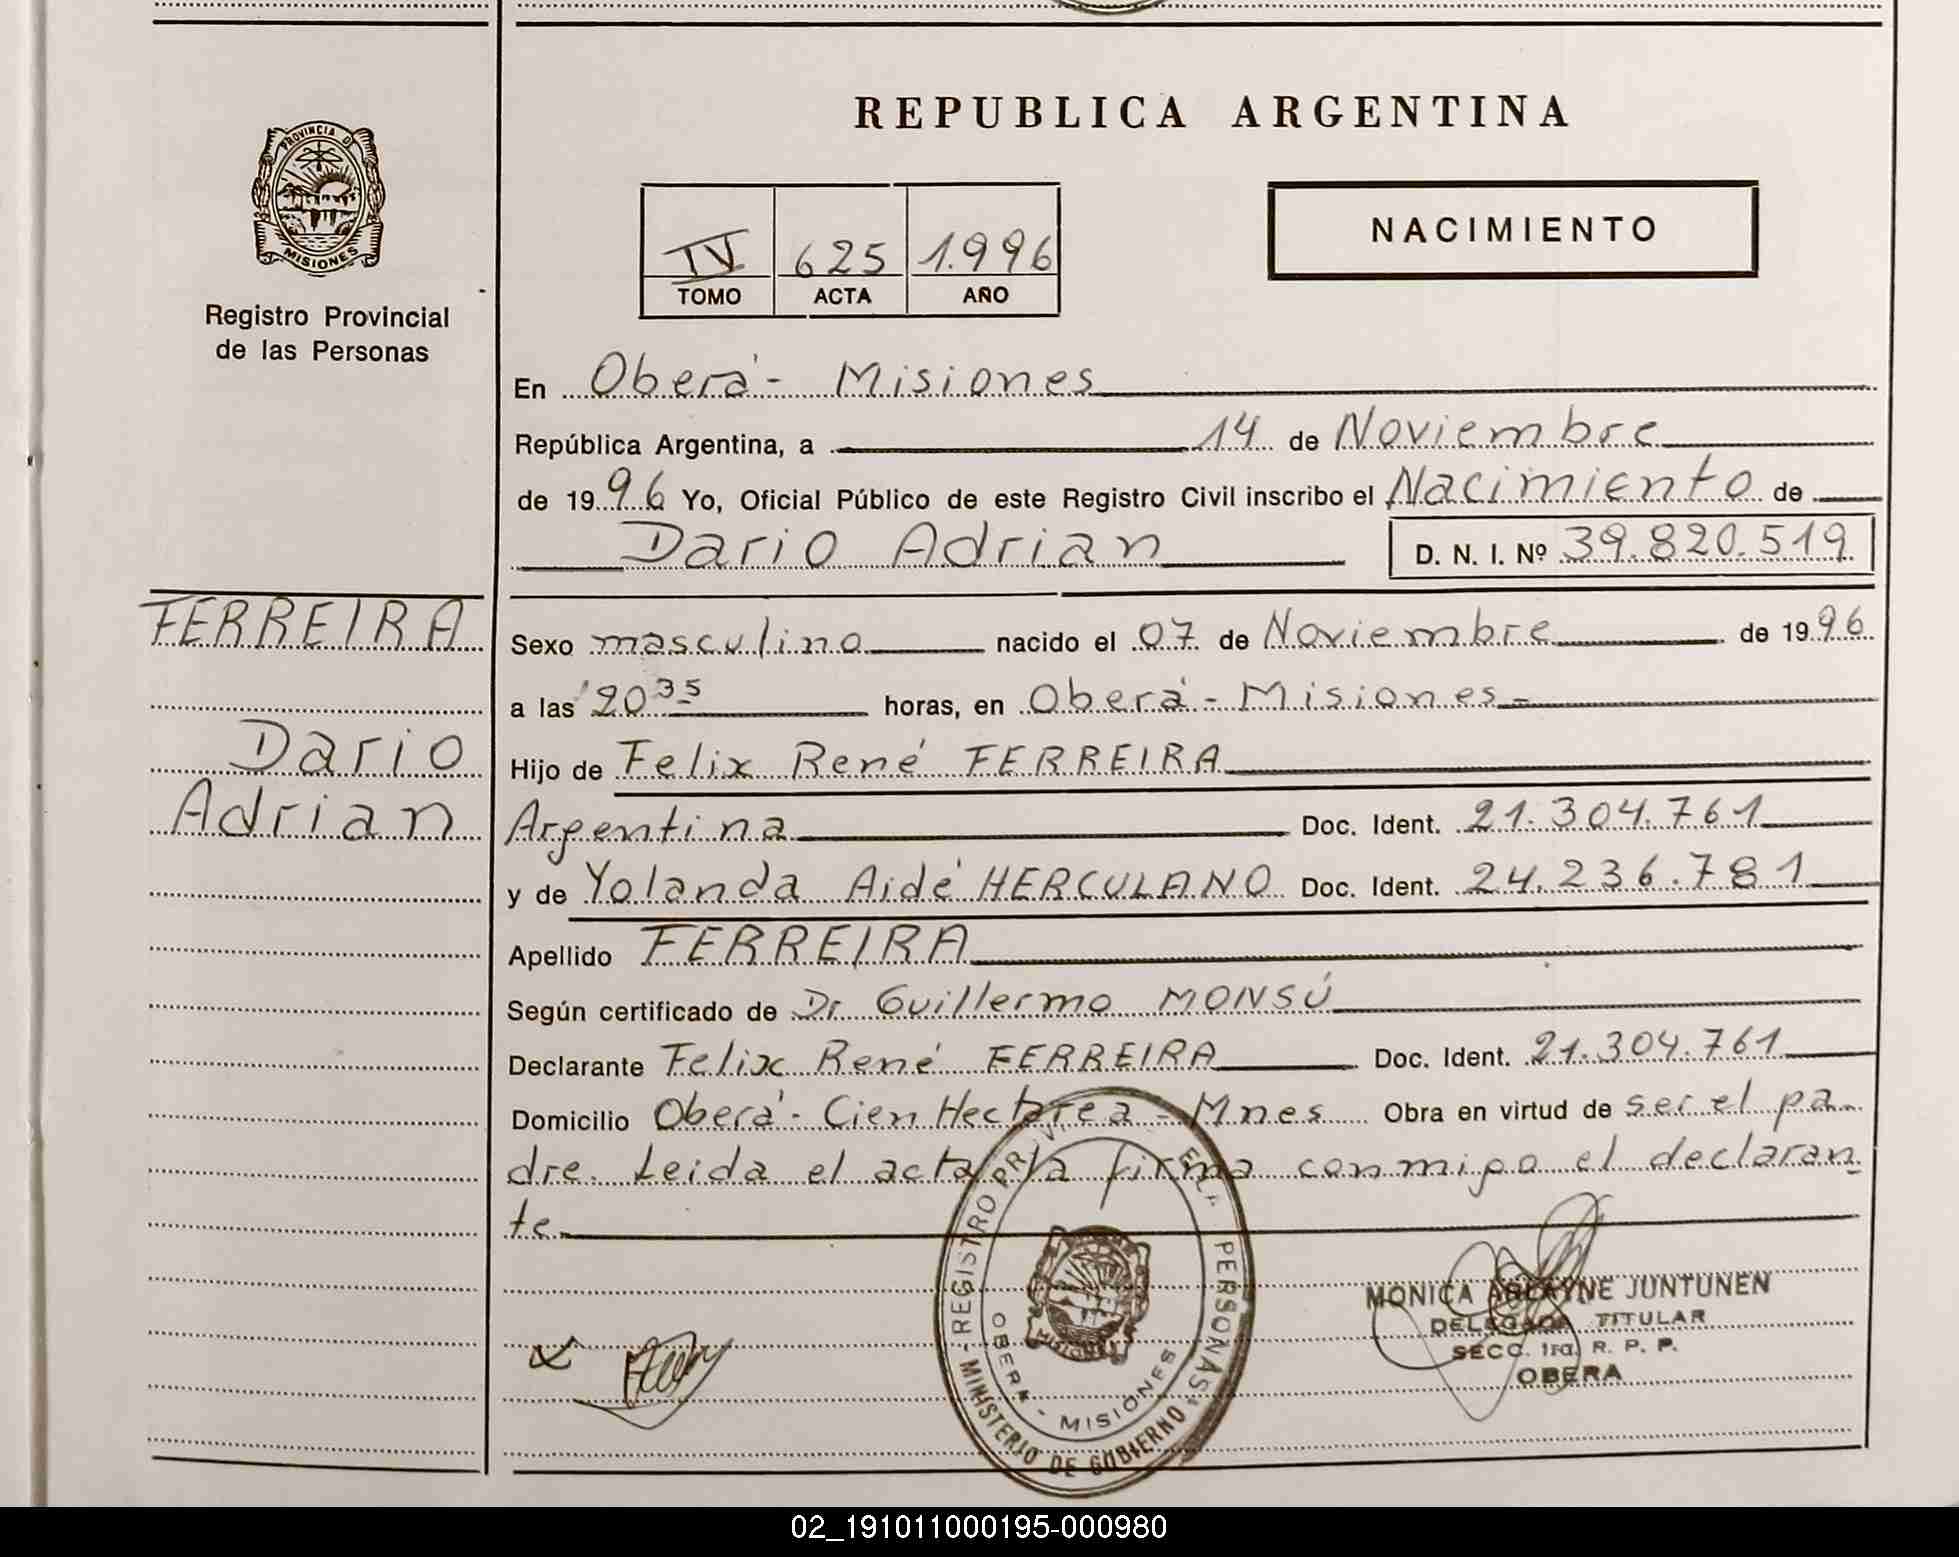 REPUBLICA ARGENTINA
PROVINCIA DE
MISIONES
Registro Provincial
de las Personas
IV 625 1.996
TOMO ACTA AÑO
NACIMIENTO
En Oberá - Misiones
República Argentina, a 14 de Noviembre
de 1996 Yo, Oficial Público de este Registro Civil inscribo el Nacimiento de
Dario Adrian D. N. I. Nº 39.820.519
FERREIRA
Dario
Adrian
Sexo masculino nacido el 07 de Noviembre de 1996
a las 20 35 horas, en Oberá - Misiones -
Hijo de Felix René FERREIRA
Argentina Doc. Ident. 21.304.761
y de Yolanda Aidé HERCULANO Doc. Ident. 24.236.781
Apellido FERREIRA
Según certificado de Dr Guillermo MONSÚ
Declarante Felix René FERREIRA Doc. Ident. 21.304.761
Domicilio Oberá - Cien Hectarea - Mnes Obra en virtud de ser el pa-
dre. Leida el acta la firma conmigo el declaran-
te.
REGISTRO PERSONAS
MINISTERIO DE GOBIERNO
OBERA - MISIONES
MISIONES
MONICA JUNTUNEN
DELEGADA TITULAR
SECC. 1ra. R. P. P.
OBERA
02_191011000195-000980